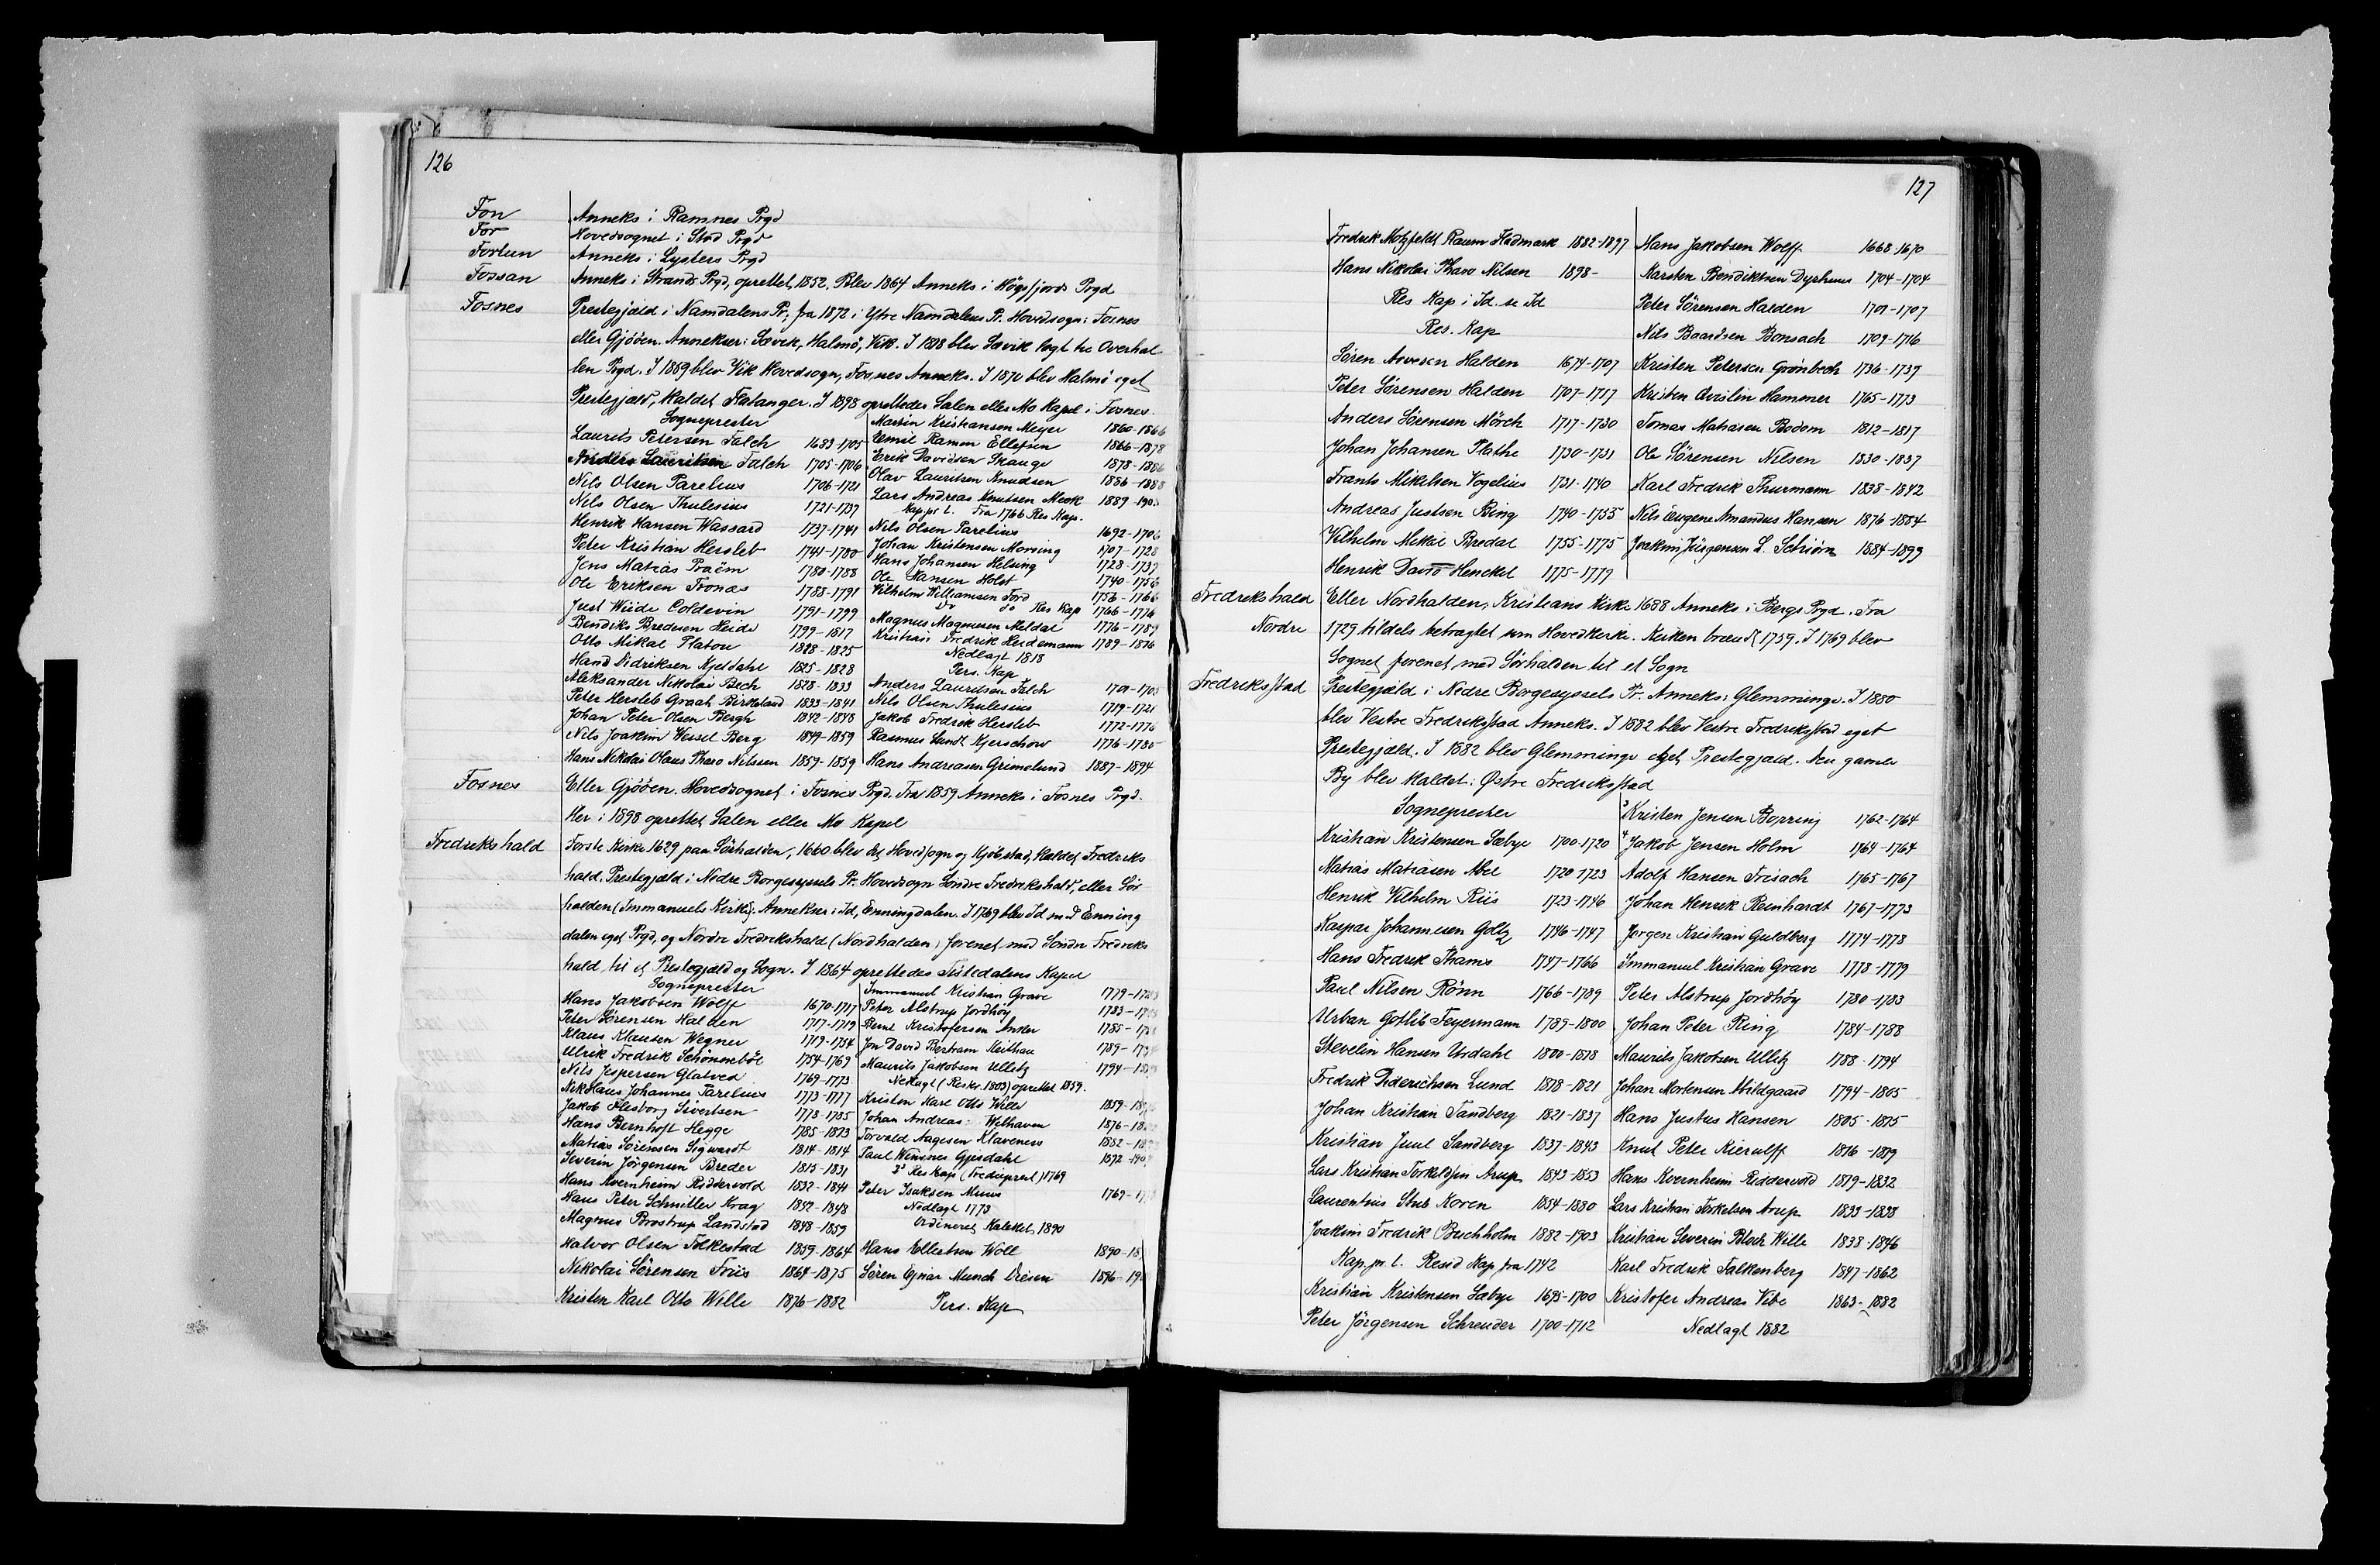 126
Fon Anneks i Ramnes Prgd
For Hovedsognet i Stod Prgd
Fortun Anneks i Lysters Prgd
Fossan Anneks i Strands Prgd, oprettet 1852. Blev 1864 Anneks i Högsfjords Prgd
Fosnes Prestegjæld i Namdalens Pr; fra 1872 i Ytre Namdalens Pr. Hovedsogn: Fosnes
eller Gjööen. Annekser: Sævik, Halmö, Vik. I 1838 blev Sævik lagt til Overhal
len Prgd. I 1859 blev Vik Hovedsogn, Fosnes Anneks. I 1870 blev Halmö eget
Prestegjæld, kaldet Flatanger. I 1898 oprettedes Salen eller Mo Kapel i Fosnes.
Sogneprester
Laurits Petersen Falch 1683-1705
Anders Lauritsen Falch 1705-1706
Nils Olsen Parelius 1706-1721
Nils Olsen Thulesius 1721-1737
Henrik Hansen Wassard 1737-1741
Peter Kristian Hersleb 1741-1780
Jens Matias Praëm 1780-1788
Ole Eriksen Tronæs 1788-1791
Just Wiide Coldevin 1791-1799
Bendiks Bredesen Heide 1799-1817
Otto Mikal Platou 1818-1825
Hans Didriksen Kjeldahl 1825-1828
Aleksander Nikolai Bech 1828-1833
Peter Hersleb Graah Birkeland 1833-1841
Johan Peter Olsen Bergh 1842-1848
Nils Joakim Wessel Berg 1849-1859
Hans Nikolai Olaus Tharo Nilssen 1859-1859
Martin Kristiansen Meyer 1860-1866
Emil Ramm Ellefsen 1866-1878
Erik Davidsen Skauge 1878-1886
Olav Lauritsen Amundsen 1886-1888
Lars Andreas Knutsen Meek 1889-190
Kap. pr. l. Fra 1766 Res Kap.
Nils Olsen Parelius 1692-1706
Johan Kristensen Morsing 1707-1728
Hans Johansen Helsing 1728-1739
Ole Hansen Holst 1740-1756
Vilhelm Williamsen Ford 1756-1766
do do Res Kap 1766-1776
Magnus Magnusen Meldal 1776-1789
Kristian Fredrik Heidemann 1789-1816
Nedlagt 1818
Pers. Kap
Anders Lauritsen Falch 1701-1705
Nils Olsen Thulesius 1719-1721
Jakob Fredrik Hersleb 1772-1776
Rasmus Sandt Kjerschow 1776-1780
Hans Andreasen Grimelund 1887-1894
Fosnes Eller Gjööen. Hovedsognet i Fosnes Prgd. Fra 1859 Anneks i Fosnes Prgd.
Her i 1898 oprettet Salen eller Mo Kapel
Fredrikshald Forste Kirke 1629 paa Sörhalden, 1660 blev det Hovedsogn og Kjöbstad, kaldet Fredriks
hald. Prestegjæld i Nedre Borgesyssels Pr. Hovedsogn Söndre Fredrikshald, eller Sör
halden (Immanuels Kirke). Annekser: Id, Enningdalen. I 1769 blev Id med Enning
dalen eget Prgd, og Nordre Fredrikshald (Nordhalden) forenet med Söndre Fredriks
hald til et Prestegjæld og Sogn. I 1864 oprettedes Tistedalens Kapel
Sogneprester
Hans Jakobsen Wolff 1670-1717
Peter Sörensen Halden 1717-1719
Klaus Klausen Wegner 1719-1754
Ulrik Fredrik Schönnebøl 1754-1769
Nils Jespersen Glatved 1769-1773
Nikolaus Johannes Parelius 1773-1777
Jakob Flesborg Sivertsen 1778-1785
Hans Bernhoft Hegge 1785-1813
Matias Sörensen Sigwardt 1814-1814
Severin Jörgensen Breder 1815-1831
Hans Kvernheim Riddervold 1832-1841
Hans Peter Schnitler Krag 1842-1848
Magnus Brostrup Landstad 1848-1859
Halvor Olsen Folkestad 1859-1864
Nikolai Sörensen Friis 1864-1875
Kristen Karl Otto Wille 1876-1882
Immanuel Kristian Grave 1779-178
Peter Alstrup Jordhöy 1783-17
Bernt Kristofersen Anker 1785-17
Jon David Bertram Keithau 1789-179
Maurits Jakobsen Ulletz 1794-18
Nedlagt (Reskr. 1803) oprettet 1859.
Kristen Karl Otto Wille 1859-18
Johan Andreas Welhaven 1876-18
Torvald Aagesen Klaveness 1882-18
Paul Wensnes Gjesdahl 1892-190
2d Res Kap (Frediprest) 1769
Peter Isaksen Muus 1769-17
Nedlagt 1773
Ordineret Kateket, 1890
Hans Ellertsen Woll 1890-18
Sören Ejnar Munch Diesen 1896-19
Pers. Kap
127
Fredrik Motzfeldt Raum Hadmark 1882-1897
Hans Nikolai Tharo Nilsen 1898-
Res Kap i Id. se Id
Res. Kap
Sören Andersen Halden 1674-1707
Peter Sörensen Halden 1707-1717
Anders Sörensen Mörch 1717-1730
Johan Johansen Plathe 1730-1731
Frants Mikelsen Vogelius 1731-1740
Andreas Justsen Bing 1740-1755
Vilhelm Mikal Bredal 1755-1775
Henrik David Henckel 1775-1779
Hans Jakobsen Wolff 1668-1670
Karsten Bendiktsen Dyrhuus 1704-1704
Peter Sörensen Halden 1701-1707
Nils Baardsen Bonsach 1709-1716
Kristen Petersen Grönbech 1736-1737
Kristen Qvislin Hammer 1765-1773
Tomas Matiasen Bodom 1812-1817
Ole Sörensen Nilsen 1830-1837
Karl Fredrik Thurmann 1838-1842
Nils Eugene Amandus Hansen 1876-1884
Joakim Jürgensen L. Schiörn 1884-1899
Fredrikshald Eller Nordhalden, Kristians Kirke 1688 Anneks i Bergs Prgd. Fra
Nordre 1729 tildels betragtet som Hovedkirke. Kirken brændt 1759. I 1769 blev
Sognet forenet med Sörhalden til et Sogn
Fredriksstad Prestegjæld i Nedre Borgesyssels Pr. Anneks: Glemminge. I 1880
blev Vestre Fredriksstad Anneks. I 1882 blev Vestre Fredriksstad eget
Prestegjæld. I 1882 blev Glemminge eget Prestegjæld. Den gamle
By blev kaldet: Østre Fredriksstad
Sogneprester
Kristian Kristensen Sæbye 1700-1720
Matias Matiasen Abel 1720 1723
Henrik Vilhelm Riis 1723-1746
Kaspar Johannesen Goltz 1746-1747
Hans Fredrik Thams 1747-1766
Paul Nilsen Rönn 1766-1789
Urban Gotlib Feyermann 1789-1800
Stevelin Hansen Urdahl 1800-1818
Fredrik Diderichsen Lund 1818-1821
Johan Kristian Tandberg 1821-1837
Kristian Juul Sandberg 1837-1843
Lars Kristian Torkeldsen Arup 1843-1853
Laurentius Stub Koren 1854-1880
Joakim Fredrik Buchholm 1882-1903
Kap. pr. l. Resid Kap fra 1742
Kristian Kristensen Sæbye 1695-1700
Peter Jörgensen Schreuder 1700-1712
3 Kristen Jensen Borring 1762-1764
4 Jakob Jensen Holm 1764-1764
Adolf Hansen Frisach 1765-1767
Johan Henrik Reinhardt 1767-1773
Jørgen Kristian Guldberg 1774-1778
Immanuel Kristian Grave 1778-1779
Peter Alstrup Jordhöy 1780-1783
Johan Peter Ring 1784-1788
Maurits Jakobsen Ulletz 1788-1794
Johan Mortensen Hildgaard 1794-1805
Hans Justus Hansen 1805-1815
Knut Peter Kierulff 1816-1819
Hans Kvernheim Riddervold 1819-1832
Lars Kristian Torkelsen Arup 1833-1838
Kristian Severin Bloch Wille 1838-1846
Karl Fredrik Falkenberg 1847-1862
Kristofer Andreas Vibe 1863-1882
Nedlagt 1882